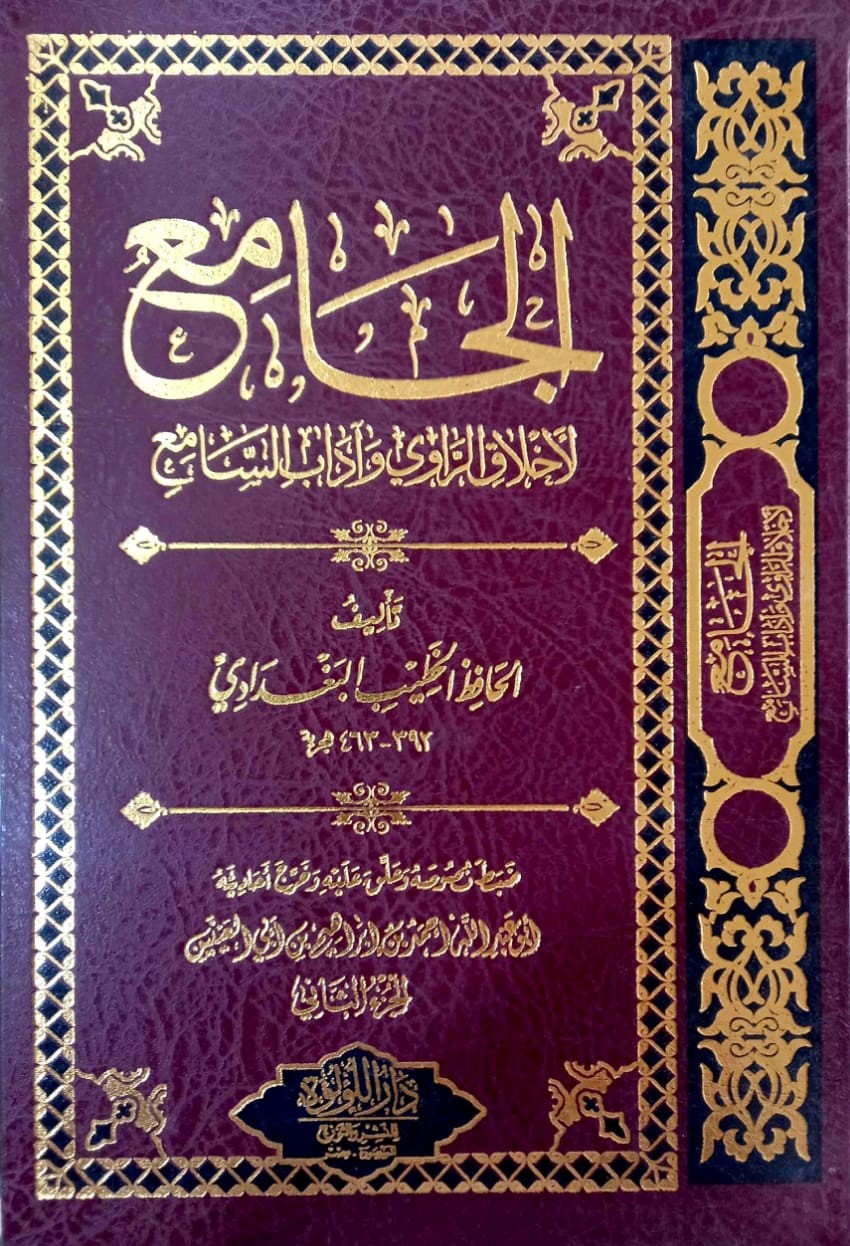 الجَامِع
لِأَخْلَاقِ الرَّاوِي وَآدَابِ السَّامِعِ
تَأْلِيفُ
الحَافِظ الخَطِيْبِ البَغْدَادِيْ
٣٩٢-٤٦٣ هـ
ضَبَطَ نصُوصَهُ وَعَلَّقَ عَلَيْهِ وَخَرَّجَ أَحَادِيثَهُ
أبو عبد الله أحمد بن إبراهيم بن أبي العينين
الجُزْءُ الثَّانِي
دَارُ اللُّؤْلُؤَة
للنشر والتوزيع
المنصورة - مصر
الجَامِع
لِأَخْلَاقِ الرَّاوِي وَآدَابِ السَّامِعِ